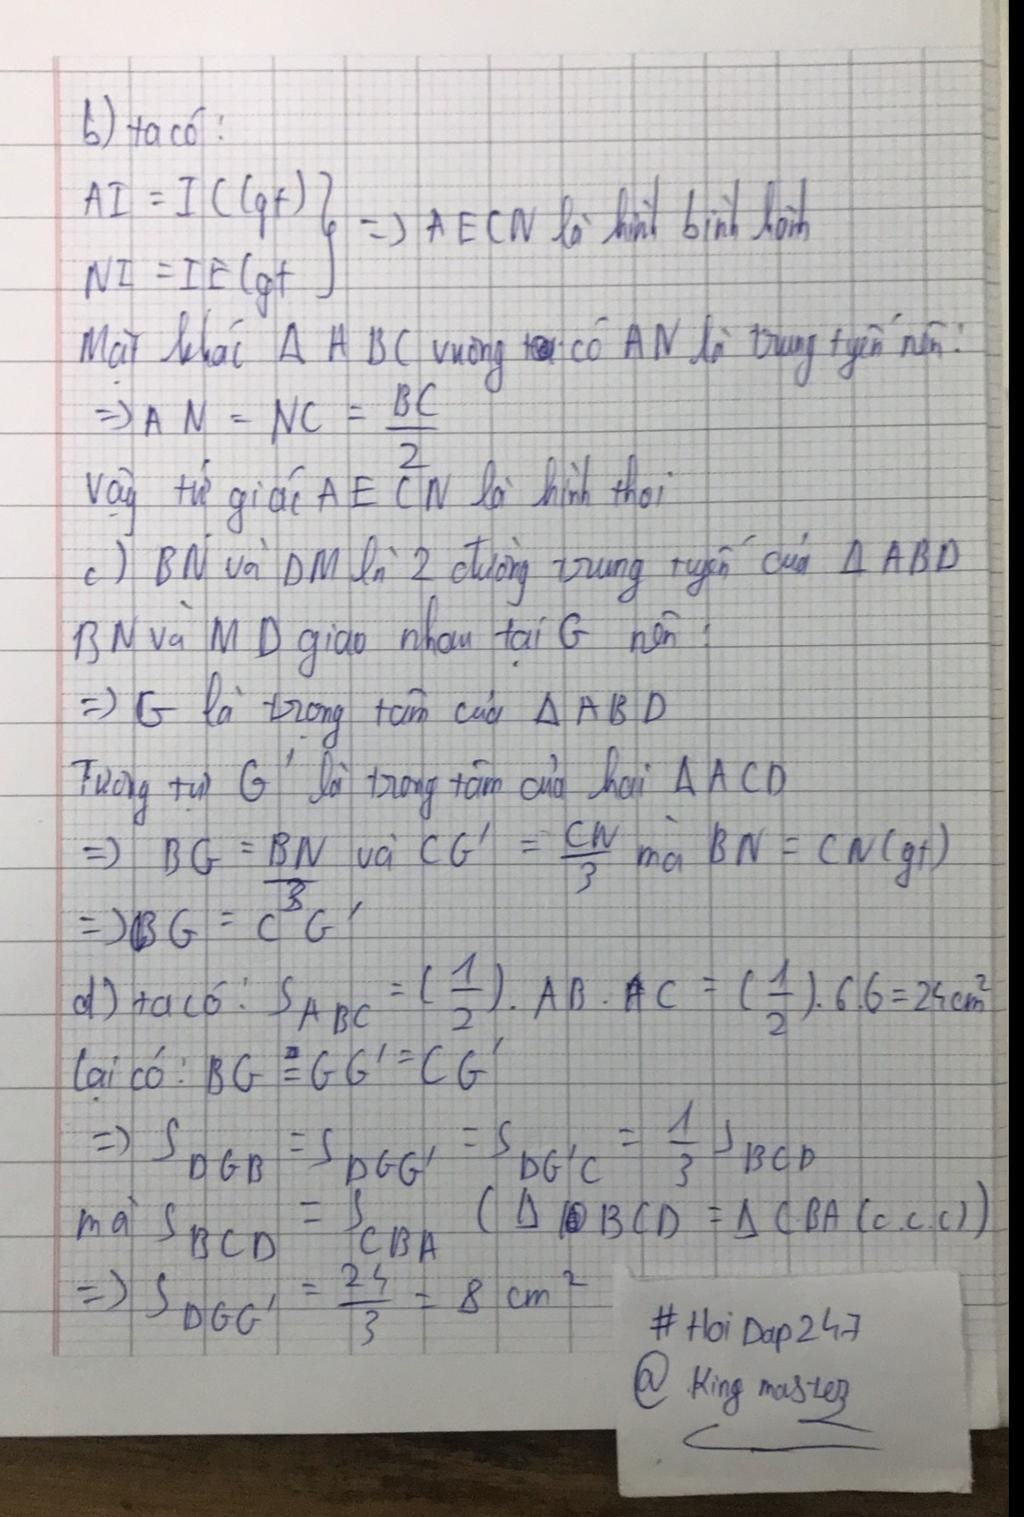 b) ta có:
AI = IC (gt) } => AECN là hình bình hành
NI = IE (gt
Mặt khác Δ ABC vuông có AN là trung tyến nên:
=> AN = NC = BC/2
Vậy tứ giác AECN là hình thoi
c) BN và DM là 2 đường trung tuyến của Δ ABD
BN và MD giao nhau tại G nên:
=> G là trọng tâm của Δ ABD
Tương tự G' là trong tâm của hai Δ ACD
=> BG = BN/3 và CG' = CN/3 mà BN = CN (gt)
=> BG = CG'
d) ta có: S_ABC = (1/2). AB. AC = (1/2).6.6 = 24cm²
lại có: BG = GG' = CG'
=> S_DGB = S_DGG' = S_DG'C = 1/3 S_BCD
mà S_BCD = S_CBA (Δ BCD = Δ CBA (c.c.c))
=> S_DGG' = 24/3 = 8 cm²
#Hoi Dap247
@ King master